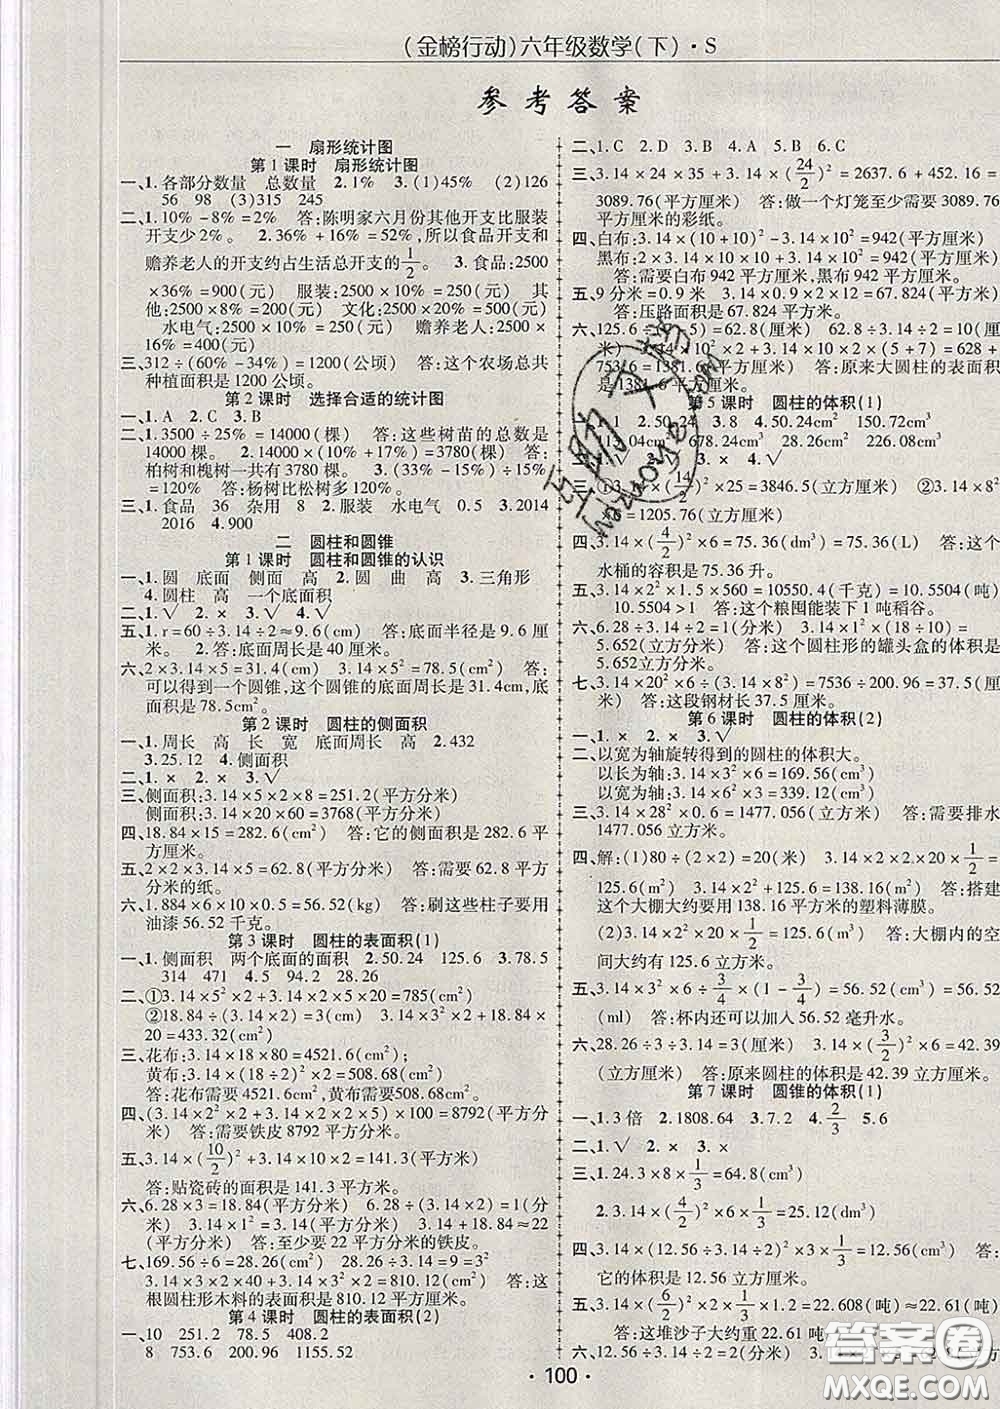 (金榜行动)六年级数学(下)·S
参考答案
一 扇形统计图
第1课时 扇形统计图
一、1.各部分数量 总数量 2.1% 3.(1)45% (2)126
56 98 (3)315 245
二、1.10%-8%=2% 答:陈明家六月份其他开支比服装
开支少2%。 2.36%+16%=52%,所以食品开支和
赡养老人的开支约占生活总开支的1/2。 3.食品:2500
×36%=900(元) 服装:2500×10%=250(元) 其
他:2500×8%=200(元) 文化:2500×20%=500(元)
水电气:2500×10%=250(元) 赡养老人:2500×
16%=400(元)
三、312÷(60%-34%)=1200(公顷) 答:这个农场总共
种植面积是1200公顷。
第2课时 选择合适的统计图
一、1.A 2.C 3.B
二、1.3500÷25%=14000(棵) 答:这些树苗的总数是
14000棵。 2.14000×(10%+17%)=3780(棵) 答:
柏树和槐树一共有3780棵。 3.(33%-15%)÷15%
=120% 答:杨树比松树多120%。
三、1.食品 36 杂用 8 2.服装 水电气 0.5 3.2014
2016 4.900
二 圆柱和圆锥
第1课时 圆柱和圆锥的认识
一、1.圆 底面 侧面 高 2.圆 曲 高 3.三角形
4.圆柱 高 一个底面积
二、1.√ 2.× 3.√ 4.√
五、1.r=60÷3.14÷2≈9.6(cm) 答:底面半径是9.6厘
米。 2.答:底面周长是40厘米。
六、2×3.14×5=31.4(cm) 3.14×5²=78.5(cm²) 答:
可以得到一个圆锥,这个圆锥的底面周长是31.4cm,底
面积是78.5cm²。
第2课时 圆柱的侧面积
一、1.周长 高 长 宽 底面周长 高 2.432
3.25.12 4.侧面积
二、1.× 2.× 3.√
三、侧面积:3.14×5×2×8=251.2(平方分米)
侧面积:3.14×20×60=3768(平方分米)
四、18.84×15=282.6(cm²) 答:它的侧面积是282.6平
方厘米。
五、2×2×3.14×5=62.8(平方分米) 答:需要62.8平方
分米的纸。
六、1.884×6×10×0.5=56.52(kg) 答:刷这些柱子要用
油漆56.52千克。
第3课时 圆柱的表面积(1)
一、1.侧面积 两个底面的面积 2.50.24 125.6 3.78.5
314 471 4.5 94.2 28.26
二、①3.14×5²×2+3.14×5×2×20=785(cm²)
②18.84÷(3.14×2)=3(cm) 3.14×3²×2+18.84×
20=433.32(cm²)
三、花布:3.14×18×80=4521.6(cm²);
黄布:3.14×(18÷2)²×2=508.68(cm²)
答:花布需要4521.6cm²,黄布需要508.68cm²。
四、(3.14×2²×2+3.14×2×2×5)×100=8792(平方分
米) 答:需要铁皮8792平方分米。
五、3.14×(10/2)²+3.14×10×2=141.3(平方米)
答:贴瓷砖的面积是141.3平方米。
六、6.28×3=18.84(平方分米) 6.28÷(3.14×2)=1(分
米) 3.14×1²=3.14(平方分米) 3.14+18.84≈22
(平方分米) 答:至少要22平方分米的铁皮。
七、169.56÷6=28.26(cm²) 28.26÷3.14=9=3²
3.14×3×2×40+3.14×3²×2=810.12(cm²) 答:这
根圆柱形木料的表面积是810.12平方厘米。
第4课时 圆柱的表面积(2)
一、10 251.2 78.5 408.2
8 753.6 200.96 1155.52
二、1.C 2.D 3.B 4.A 5.B 6.C
三、3.14×24×35+3.14×(24/2)²=2637.6+452.16=
3089.76(平方厘米) 答:做一个灯笼至少需要3089.76
平方厘米的彩纸。
四、白布:3.14×(10+10)²-3.14×10²=942(平方厘米)
黑布:2×3.14×10×15=942(平方厘米)
答:需要白布942平方厘米,黑布942平方厘米。
五、9分米=0.9米 3.14×0.9×2×12=67.824(平方米)
答:压路面积是67.824平方米。
六、125.6÷ 5)=62.8(厘米) 62.8÷3.14÷2=10(厘
米) 3.14×10²×2+3.14×10×2×(5+7)=628+
753.6=1381.6(平方厘米) 答:原来大圆柱的表面积
是1381.6平方厘米。
第5课时 圆柱的体积(1)
1 2.50.24 3.8 4.50.24cm³ 150.72cm³
cm³ 678.24cm³ 28.26cm² 226.08cm³
3.× 4.√
三、①3.14×(14/2)²×25=3846.5(立方厘米) ②3.14×8²
×6=1205.76(立方厘米)
四、3.14×(4/2)²×6=75.36(dm³)=75.36(L) 答:这个
水桶的容积是75.36升。
五、3.14×2²×1.5×560=10550.4(千克)=10.5504(吨)
10.5504>1 答:这个粮囤能装下1吨稻谷。
六、6.28÷3.14÷2=1(分米) 3.14×1²×(18÷10)=
5.652(立方分米) 答:这个圆柱形的罐头盒的体积是
5.652立方分米。
七、3.14×20²×6÷(3.14×8²)=7536÷200.96=37.5(厘
米) 答:这段钢材长37.5厘米。
第6课时 圆柱的体积(2)
一、1.× 2.× 3.√
二、以宽为轴旋转得到的圆柱的体积大。
以长为轴:3.14×3²×6=169.56(cm³)
以宽为轴:3.14×6²×3=339.12(cm³)
三、3.14×28²×0.6=1477.056(立方厘米) 答:需要排水
1477.056立方厘米。
四、解:(1)80÷(2×2)=20(米) 3.14×2×2×20×1/2=
125.6(m²) 3.14×2²+125.6=138.16(m²) 答:搭建
这个大棚大约要用138.16平方米的塑料薄膜。
(2)3.14×2²×20×1/2=125.6(m³) 答:大棚内的空
间大约有125.6立方米。
五、3.14×3²×6÷3/4×(1-3/4)=56.52(cm³)=56.52
(ml) 答:杯内还可以装56.52毫升水。
六、28.26÷3÷3.14=3(厘米) 3.14×(3/2)²×6=42.39
(立方厘米) 答:原来圆柱的体积是42.39立方厘米。
第7课时 圆锥的体积(1)
一、1.3倍 2.1808.64 3.7.2 4.2/3 5.6
二、1.√ 2.× 3.×
三、1.24.3×8×1/3=64.8(cm³)
2.3.14×(4/2)²×6×1/3=25.12(dm³)
四、3.14×(12.56÷3.14÷2)²×3×1/3=12.56(cm³) 答:
它的体积是12.56立方厘米。
五、3.14×(6/2)²×2×1/3×1.2=22.608(吨)≈22.61(吨)
答:这堆沙子大约重22.61吨。
六、12.56÷3.14÷2=2(分米)
·100·
答案圈
MXQE.COM